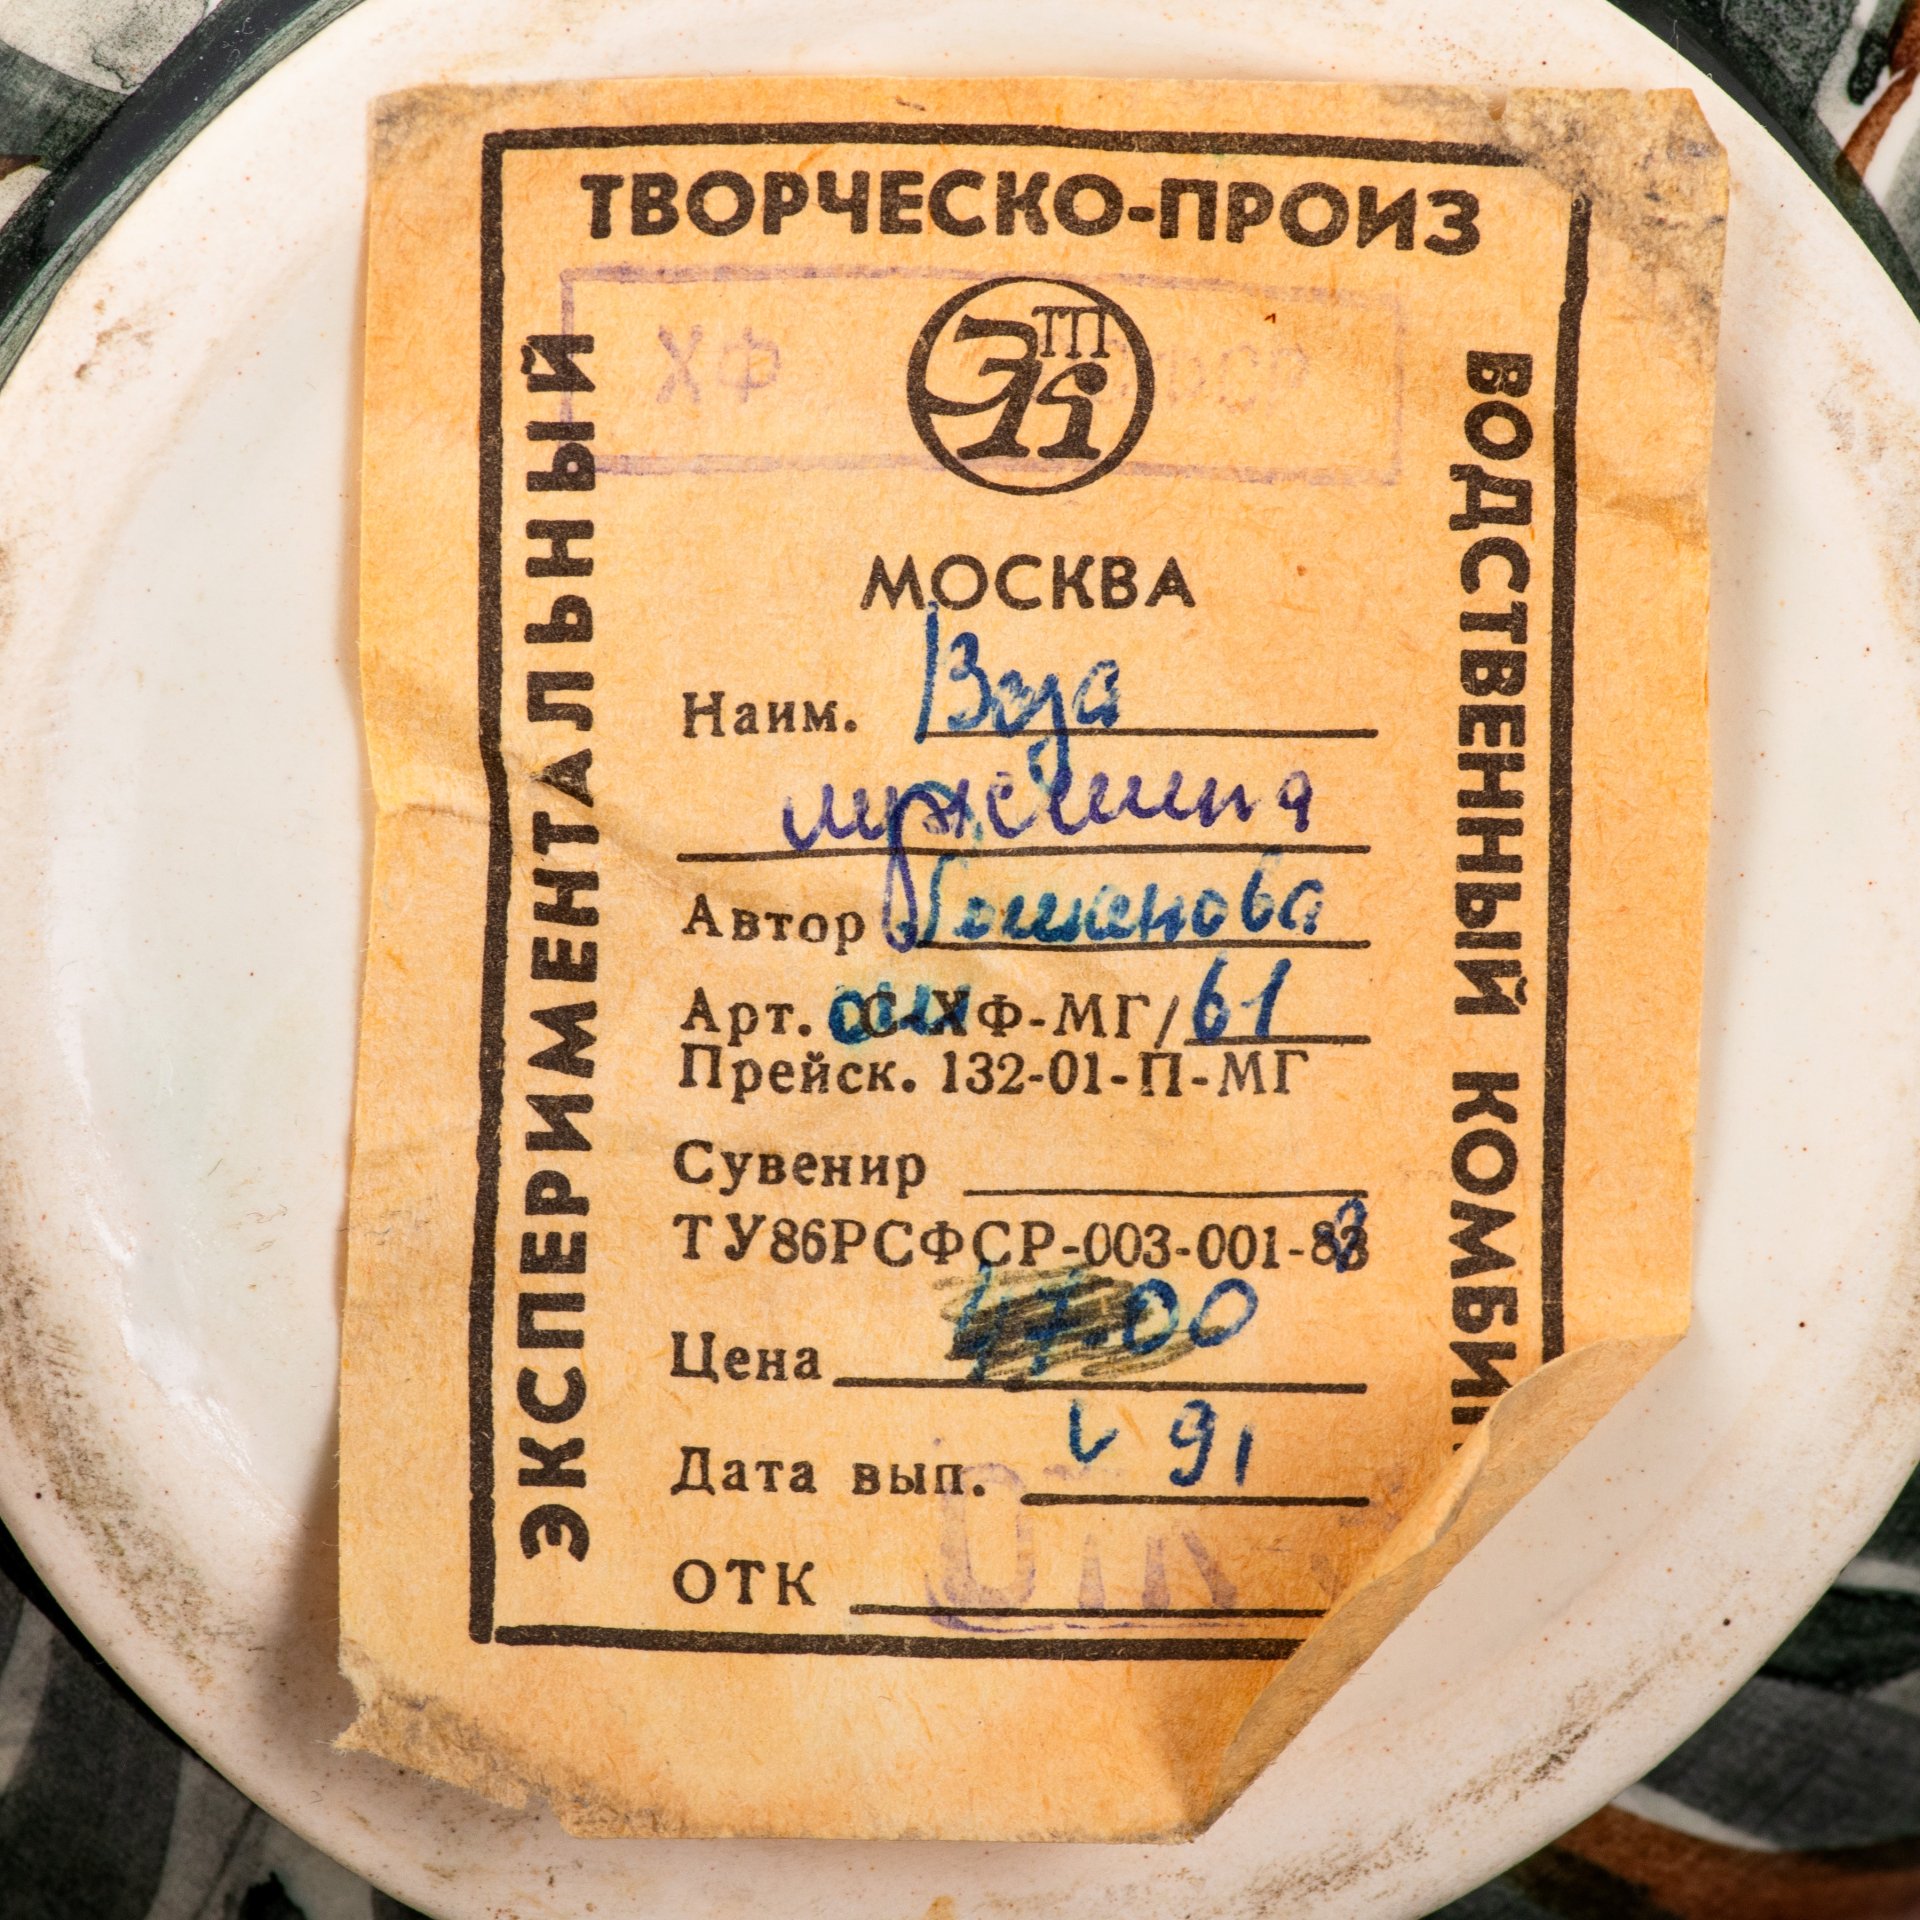 ТВОРЧЕСКО-ПРОИЗ
ВОДСТВЕННЫЙ КОМБИ
ЭКСПЕРИМЕНТАЛЬНЫЙ
ХФ
ЭТПК
МОСКВА
Наим. Ваза
Автор
Арт. С-ХФ-МГ/61
Прейск. 132-01-П-МГ
Сувенир
ТУ86РСФСР-003-001-88
Цена 47.00
Дата вып. 91
ОТК